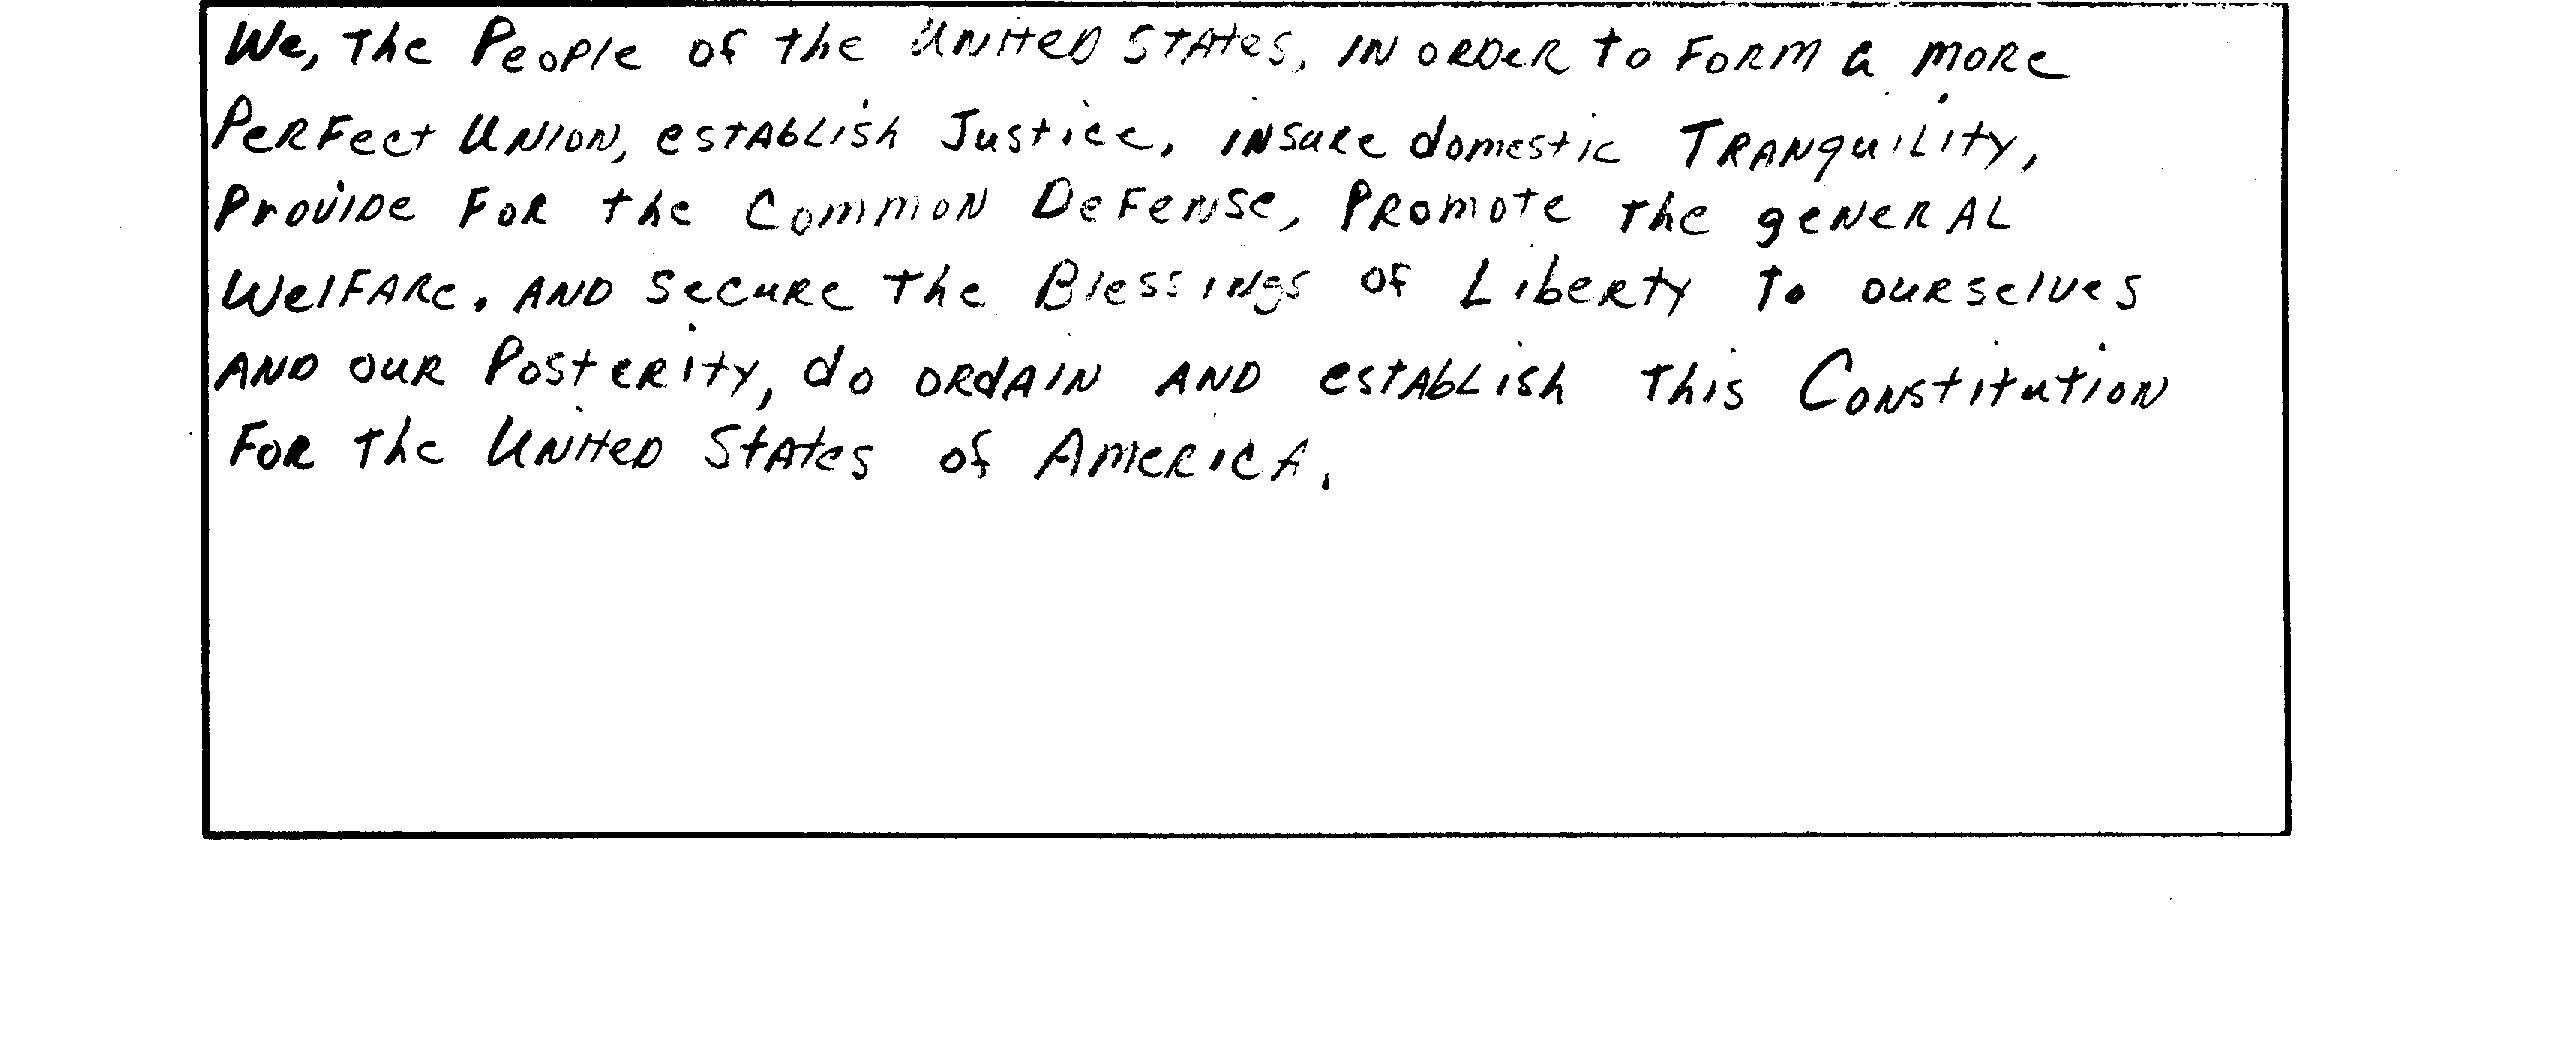 We, The People of the United States, in order to form a more
Perfect Union, establish Justice, insure domestic Tranquility,
Provide For the Common Defense, Promote the general
Welfare, and secure the Blessings of Liberty to ourselves
and our Posterity, do ordain and establish this Constitution
For the United States of America.